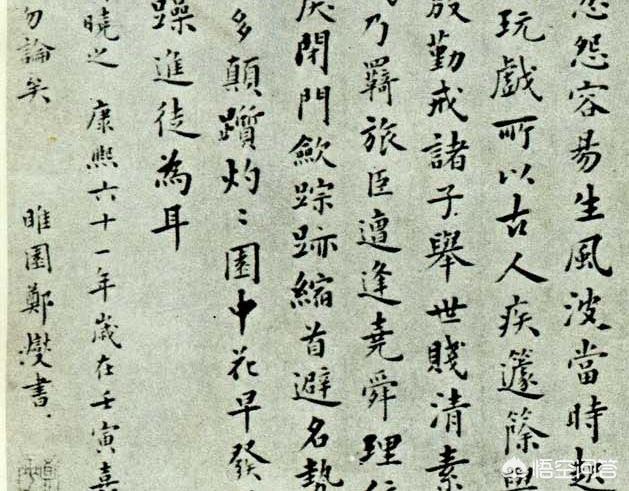 怨容易生風波當時起
玩戲所以古人疾籧篨與
殷勤戒諸子舉世賤清素
乃羇旅臣遭逢堯舜理
戾閉門歛踪跡縮首避名勢
多顛躓灼〻園中花早發
躁進徒為耳
曉之 康熙六十一年歲在壬寅嘉
勿論矣 睢園鄭燮書
悟空问答